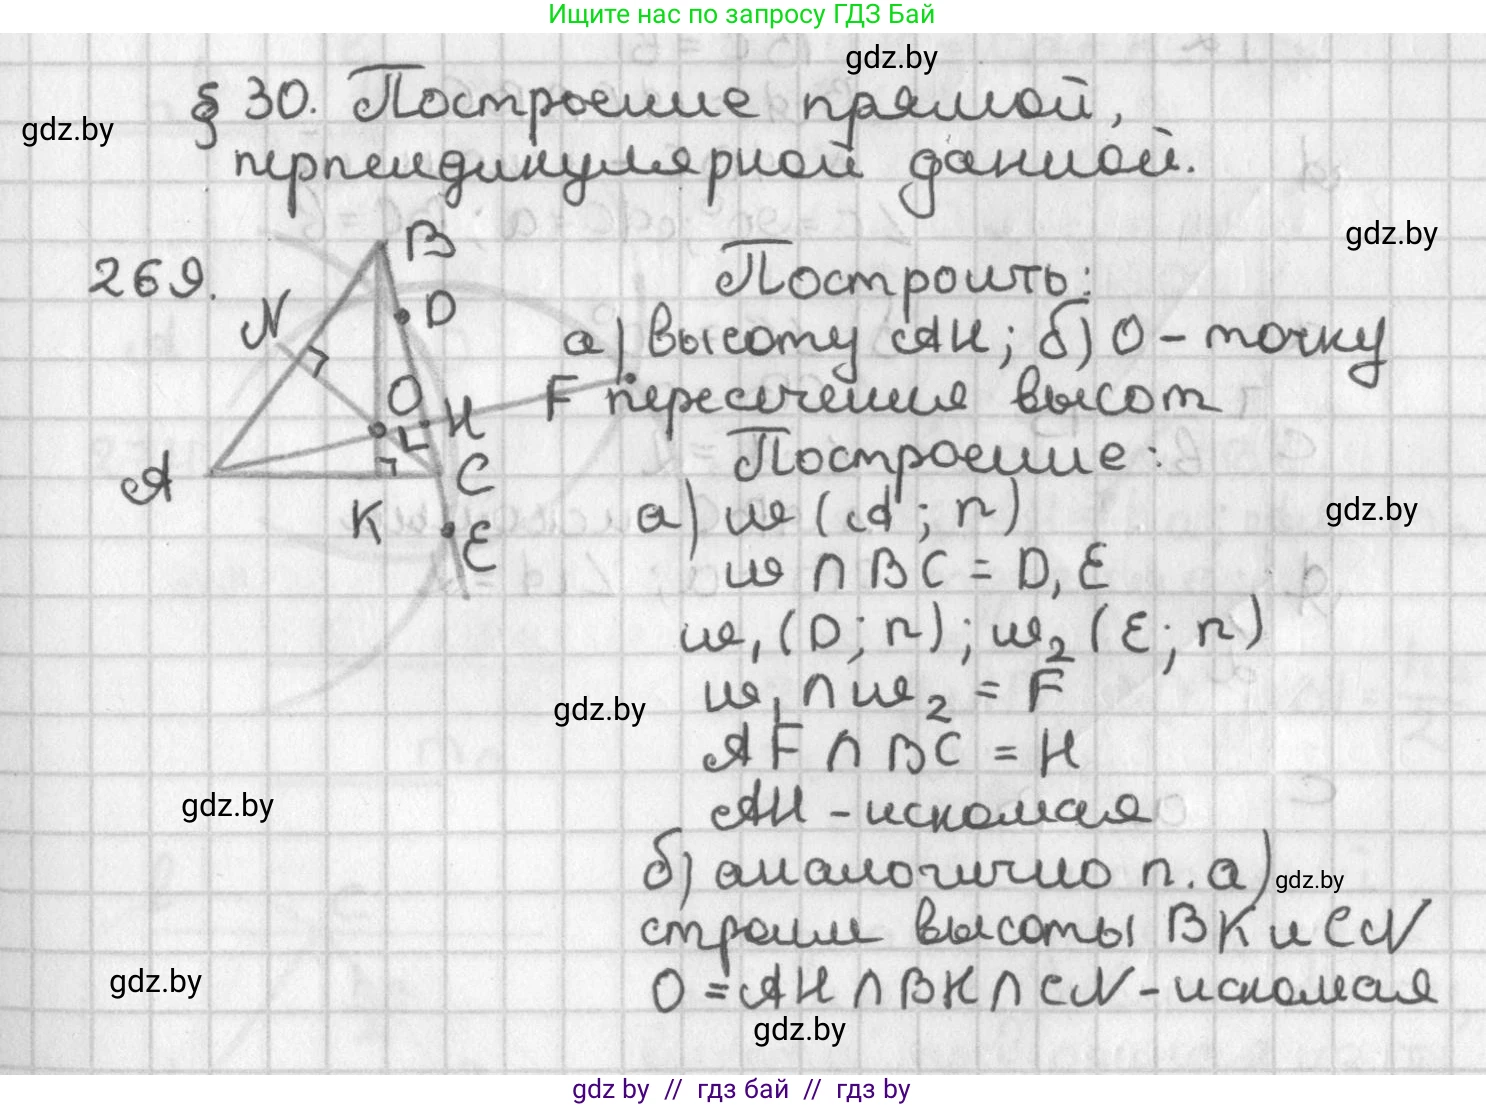 Ищите нас по запросу ГДЗ Бай
gdz.by
§ 30. Построение прямой,
gdz.by
перпендикулярной данной.
gdz.by
269.
B
D
N
O
H
F
A
K
C
E
Построить:
а) высоту AH; б) O - точку
пересечения высот
Построение:
gdz.by
а) ω (A; r)
ω ∩ BC = D, E
ω₁ (D; r); ω₂ (E; r)
gdz.by
ω₁ ∩ ω₂ = F
AF ∩ BC = H
gdz.by
AH - искомая
б) аналогично п. а)
gdz.by
строим высоты BK и CN
gdz.by
O = AH ∩ BK ∩ CN - искомая
gdz.by
gdz by // гдз бай // гдз by